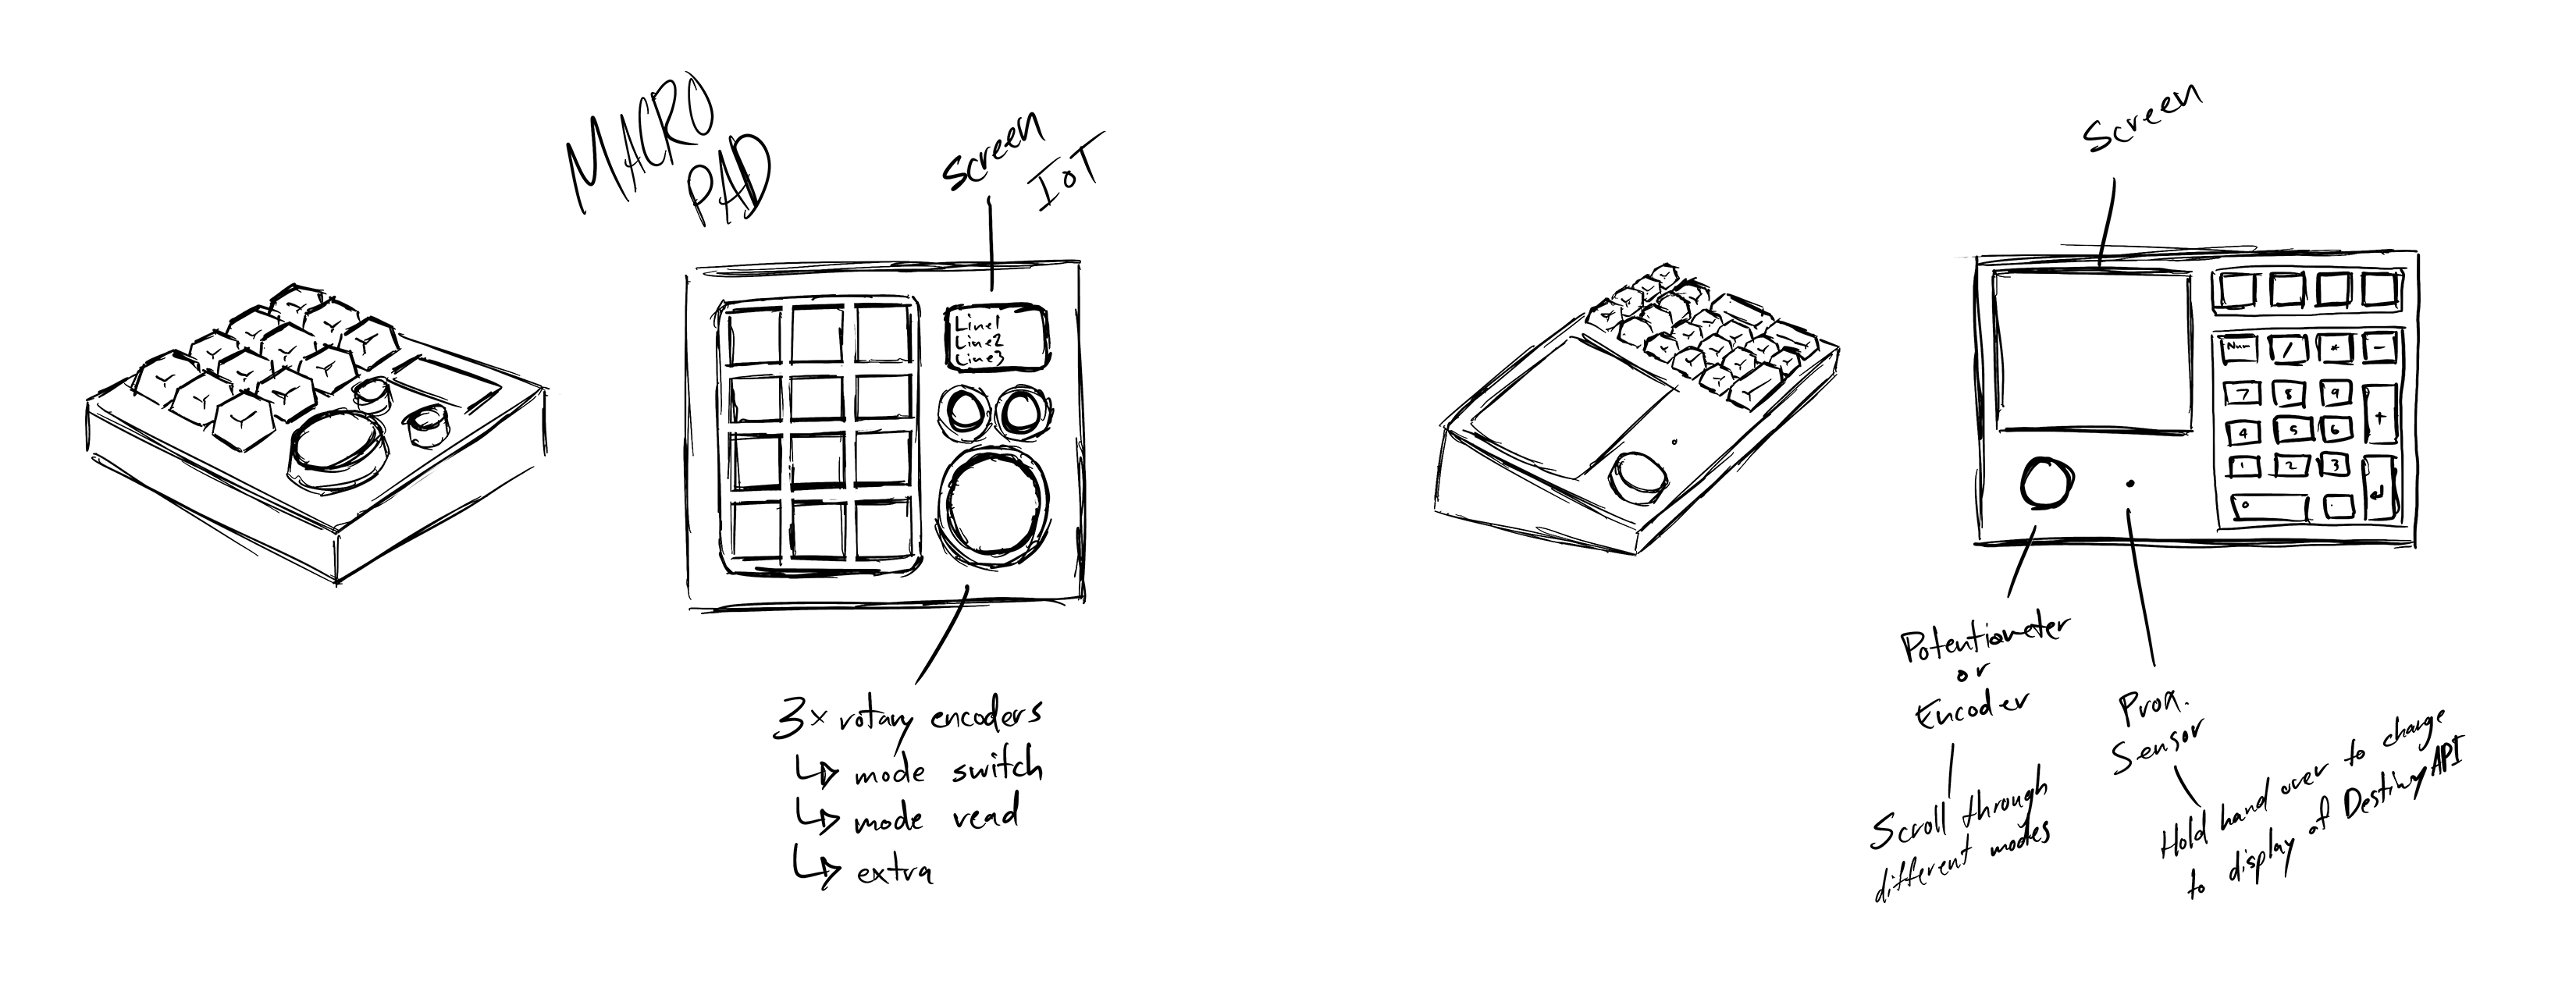 MACRO
PAD
Screen
IoT
Line1
Line2
Line3
3x rotary encoders
↳ mode switch
↳ mode read
↳ extra
Screen
Num / * -
7 8 9 +
4 5 6
1 2 3 ↵
0
Potentiometer
or
Encoder
Scroll through
different modes
Prox.
Sensor
Hold hand over to change
to display of Destiny API